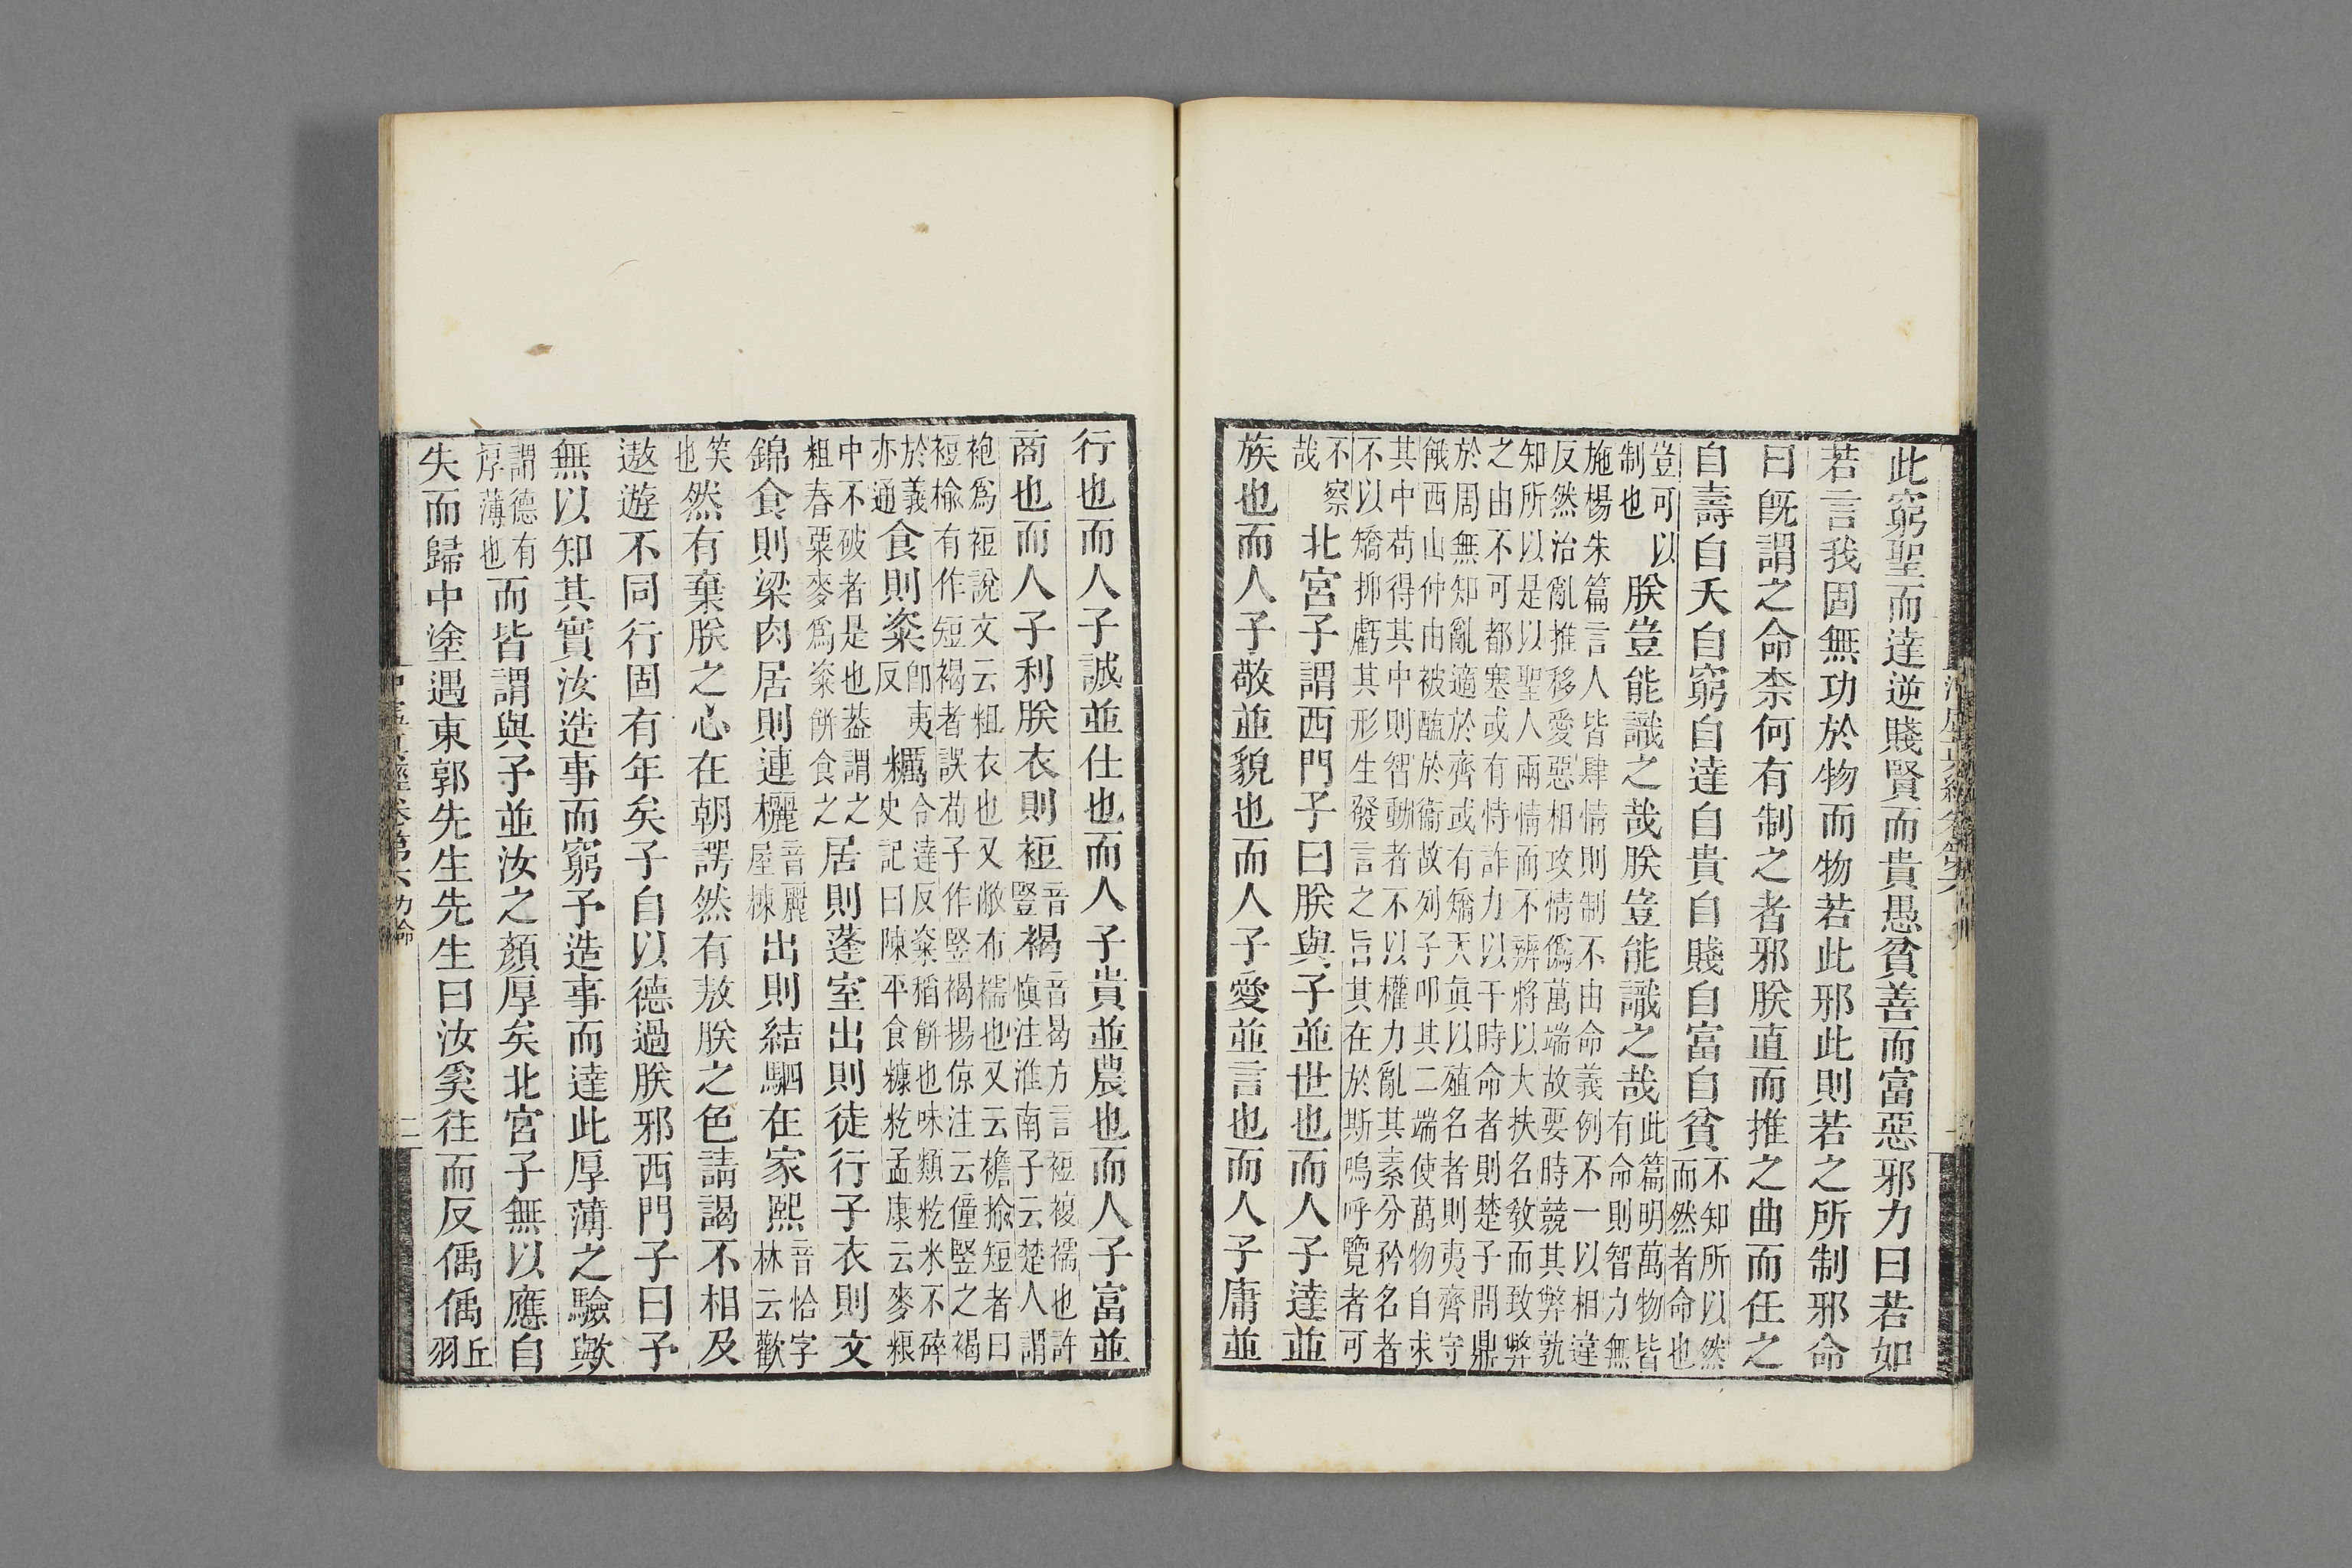 此窮聖而達逆賤賢而貴愚貧善而富惡邪力曰若如
若言我固無功於物而物若此邪此則若之所制邪命
曰既謂之命柰何有制之者邪朕直而推之曲而任之
自壽自夭自窮自達自貴自賤自富自貧不知所以然而然者命也
豈可以制也朕豈能識之哉朕豈能識之哉此篇明萬物皆有命則智力無
施楊朱篇言人皆肆情則制不由命義例不一以相違
反然治亂推移愛惡相攻情僞萬端故要時競其弊孰
知所以是以聖人兩情而不辨將以大扶名敎而致弊
之由不可都塞或有恃詐力以干時命者則楚子問鼎
於周無知亂適於齊或有矯天眞以殖名者則夷齊守
餓西山仲由被醢於衞故列子叩其二端使萬物自求
其中苟得其中則智動者不以權力亂其素分矜名者
不以矯抑虧其形生發言之旨其在於斯嗚呼覽者可
不察哉北宮子謂西門子曰朕與子並世也而人子達並
族也而人子敬並貌也而人子愛並言也而人子庸並
行也而人子誠並仕也而人子貴並農也而人子富並
商也而人子利朕衣則裋音豎褐音曷方言裋複襦也許愼注淮南子云楚人謂
袍爲裋說文云粗衣也又敝布襦也又云襜揄短者曰
裋楡有作短褐者誤荀子作豎褐揚倞注云僮豎之褐
於義亦通食則粢卽夷反糲令達反粢稻餅也味類籺米不碎史記曰陳平食糠籺孟康云麥糠
中不破者是也葢謂之粗舂粟麥爲粢餅食之居則蓬室出則徒行子衣則文
錦食則梁肉居則連欐音麗屋棟出則結駟在家熙音恰字林云歡
笑也然有棄朕之心在朝諤然有敖朕之色請謁不相及
遨遊不同行固有年矣子自以德過朕邪西門子曰予
無以知其實汝造事而窮予造事而達此厚薄之驗歟
謂德有厚薄也而皆謂與予並汝之顏厚矣北宮子無以應自
失而歸中塗遇東郭先生先生曰汝奚往而反偊偊丘羽